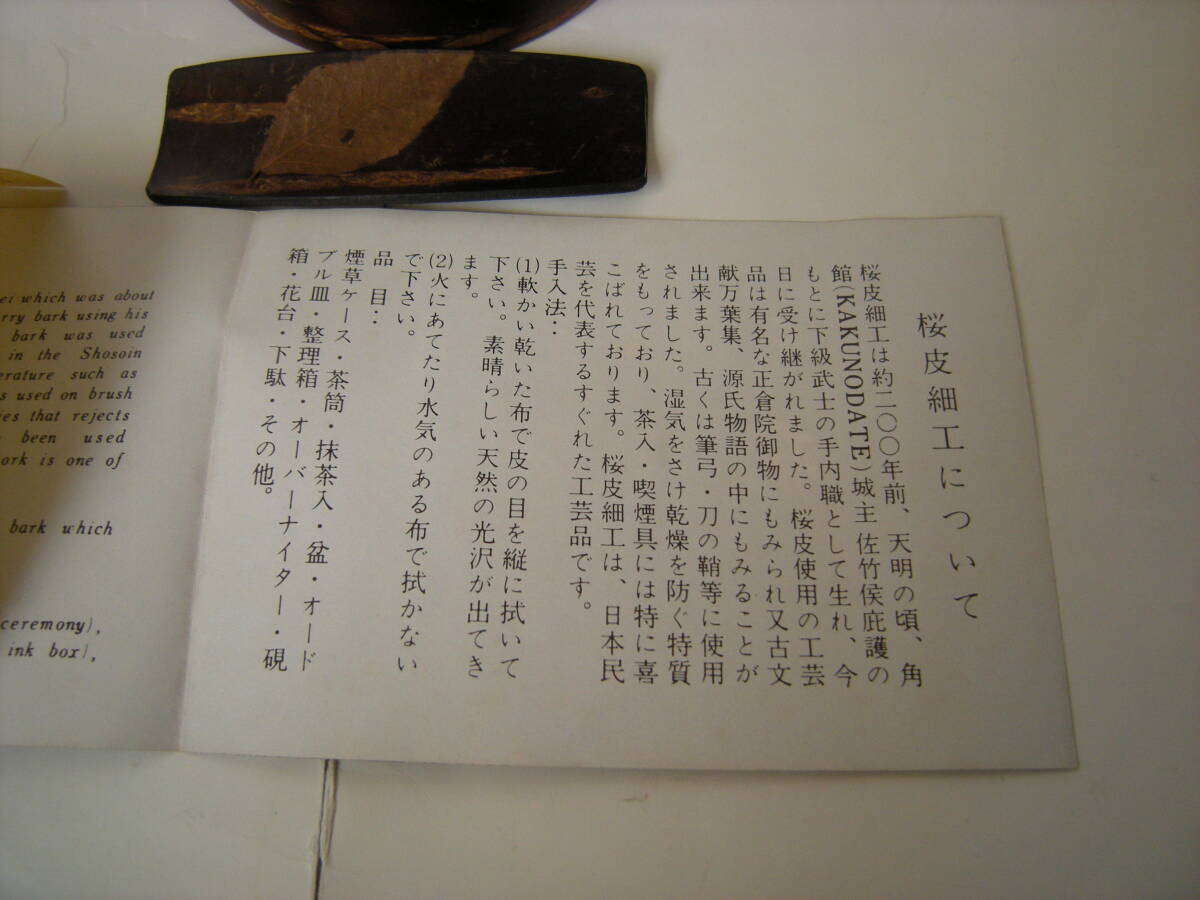 桜皮細工について
桜皮細工は約二〇〇年前、天明の頃、角
館(KAKUNODATE)城主 佐竹侯庇護の
もとに下級武士の手内職として生れ、今
日に受け継がれました。桜皮使用の工芸
品は有名な正倉院御物にもみられ又古文
献万葉集、源氏物語の中にもみることが
出来ます。古くは筆弓・刀の鞘等に使用
されました。湿気をさけ乾燥を防ぐ特質
をもっており、茶入・喫煙具には特に喜
こばれております。桜皮細工は、日本民
芸を代表するすぐれた工芸品です。
手入法：
(1)軟かい乾いた布で皮の目を縦に拭いて
下さい。素晴らしい天然の光沢が出てき
ます。
(2)火にあてたり水気のある布で拭かない
で下さい。
品 目：
煙草ケース・茶筒・抹茶入・盆・オード
ブル皿・整理箱・オーバーナイター・硯
箱・花台・下駄・その他。
ei which was about
rry bark using his
bark was used
in the Shosoin
erature such as
s used on brush
ies that rejects
been used
ork is one of
bark which
ceremony),
ink box),